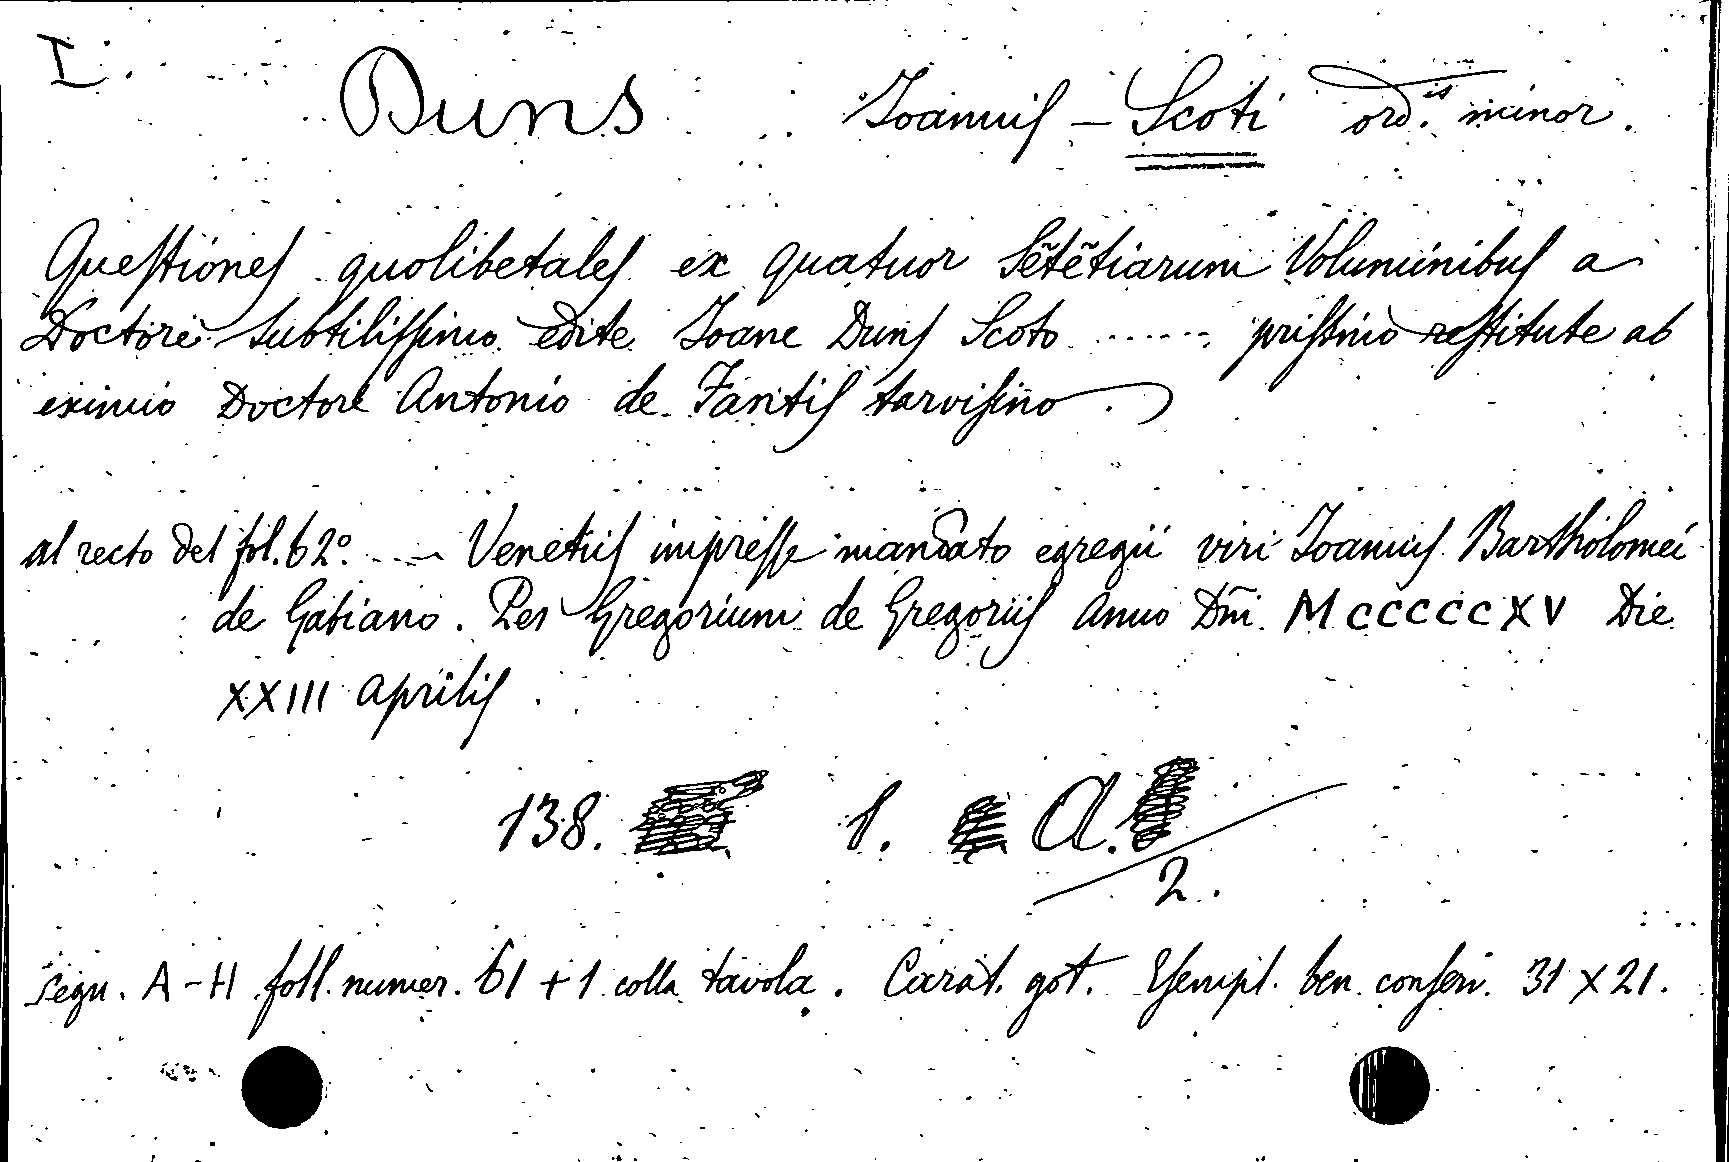 I.
Duns Ioannis – Scoti ord.is minor.
Questiones quolibetales ex quatuor Sētētiarum Voluminibus a
Doctore subtilissimo edite Ioane Duns Scoto ....... pristino restitute ab
eximio Doctore Antonio de Fantis tarvisino.
al recto del fol. 62º. .... Venetiis impresse mandato egregii viri Ioannis Bartholomei
de Gabiano. Per Gregorium de Gregoriis Anno Dñi MCCCCCXV Die
XXIII aprilis.
138. 1. A.
2.
segn. A-H foll. numer. 61 + 1 colla tavola. Carat. got. Esempl. ben conserv. 31 X 21.